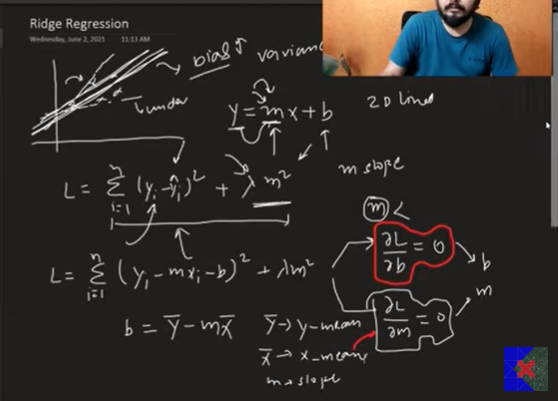 Ridge Regression
Wednesday, June 2, 2021 11:13 AM
bias↑ varian
under
y = mx + b
2D lines
m slope
L = Σ_{i=1}^{n} (yᵢ - ŷᵢ)² + λm²
m <
∂L/∂b = 0
b
L = Σ_{i=1}^{n} (yᵢ - mxᵢ - b)² + λm²
∂L/∂m = 0
m
b = ȳ - mx̄
ȳ → y-mean
x̄ → x-mean
m → slope